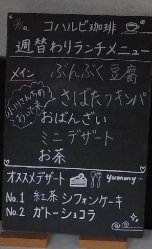 コハルビ珈琲
週替わりランチメニュー
メイン ぶんぶく豆腐
さばたつキンパ
おばんざい
ミニデザート
お茶
オススメデザート yummy
No.1 紅茶シフォンケーキ
No.2 ガトーショコラ